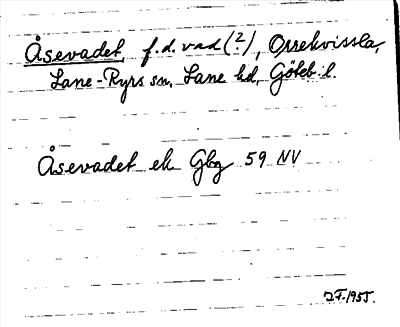 Åsevadet, f.d. vad (?), Orrekvissla,
Lane-Ryrs sn, Lane hd, Göteb. l.
Åsevadet ek Gbg 59 NV
1955.